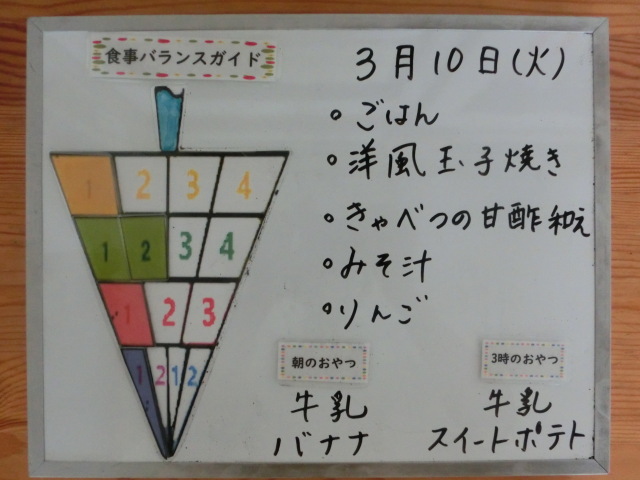 食事バランスガイド
3月10日(火)
。ごはん
。洋風玉子焼き
。きゃべつの甘酢和え
。みそ汁
。りんご
1 2 3 4
1 2 3 4
1 2 3
1 2 1 2
朝のおやつ
牛乳
バナナ
3時のおやつ
牛乳
スイートポテト